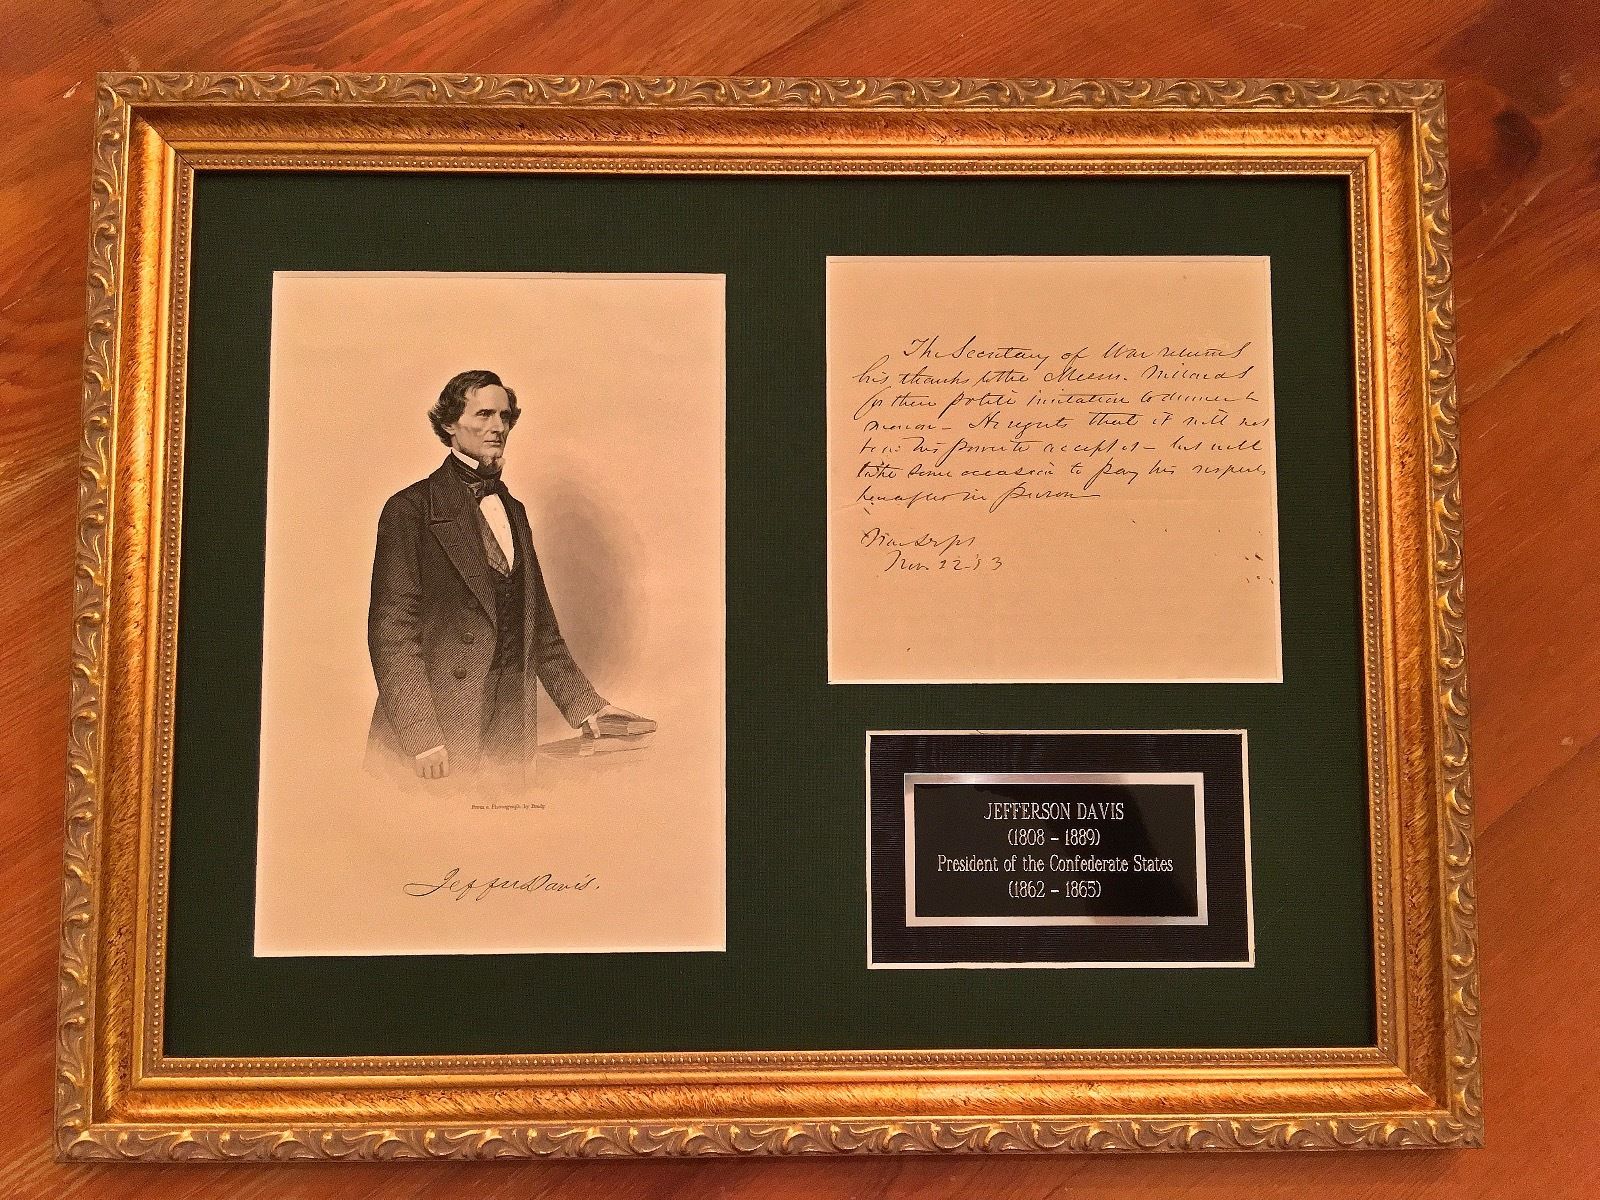 From a Photograph by Brady
Jeffer Davis.
The Secretary of War returns
his thanks to the Messrs.
for their polite invitation to dinner to
morrow - He regrets that it will not
be in his power to accept it - but will
take some occasion to pay his respects
hereafter in person
War Dept
Nov. 22 '53
JEFFERSON DAVIS
(1808 - 1889)
President of the Confederate States
(1862 - 1865)